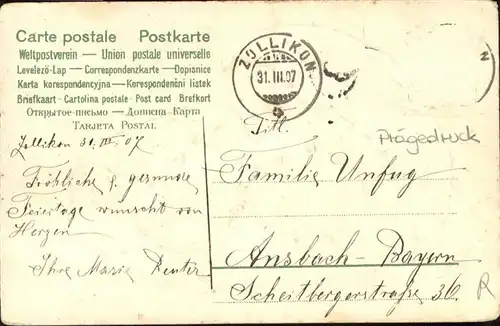 Carte postale Postkarte
Weltpostverein — Union postale universelle
Levelező-Lap — Correspondenzkarte — Dopisnice
Karta korespondencyjna — Korespondenční listek
Briefkaart - Cartolina postale - Post card Brefkort
Открытое-письмо — Дописна Карта
Tarjeta Postal
ZOLLIKON
31.III.07
N
Titl.
Prägedruck
Zollikon 31. III. 07
Fröhliche & gesunde
Feiertage wünscht von
Herzen
Ihre Marie
Familie Unfug
Ansbach - Bayern
Scheitbergerstraße 36.
R